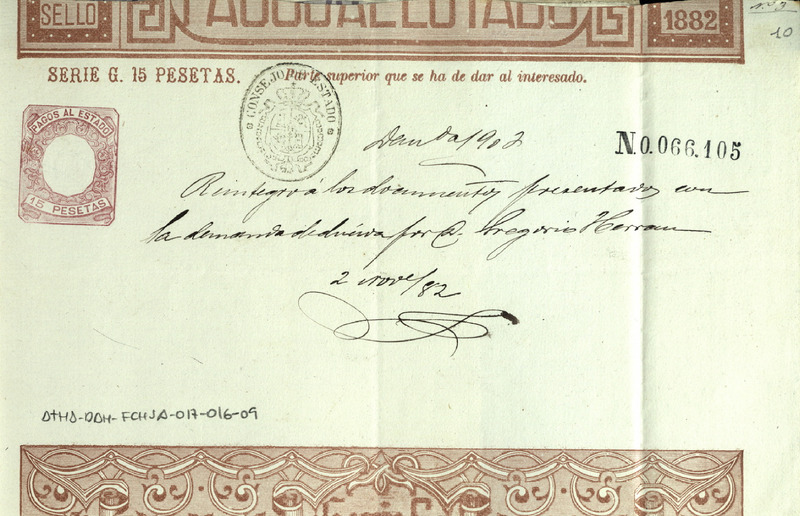 SELLO
PAGOS AL ESTADO
1882
10
SERIE G. 15 PESETAS.
Parte superior que se ha de dar al interesado.
CONSEJO ESTADO
PAGOS AL ESTADO
15 PESETAS
N0.066.105
Reintegro á los documentos presentados con
la demanda deducida por D. Gregorio Herran
2 Nove/82
ATHA-DAH-FCHJA-017-016-09